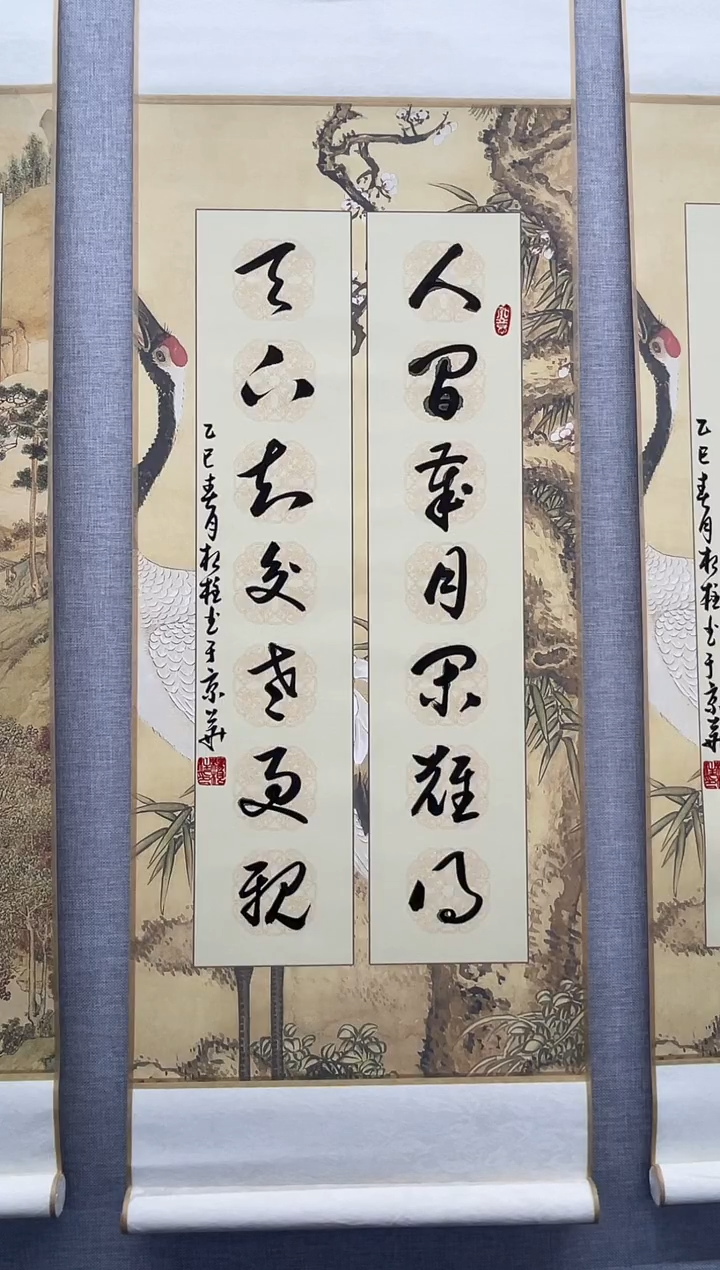 人間歲月閑難得
天下知交老更親
乙巳春月柱书于京華
乙巳春月柱书于京華